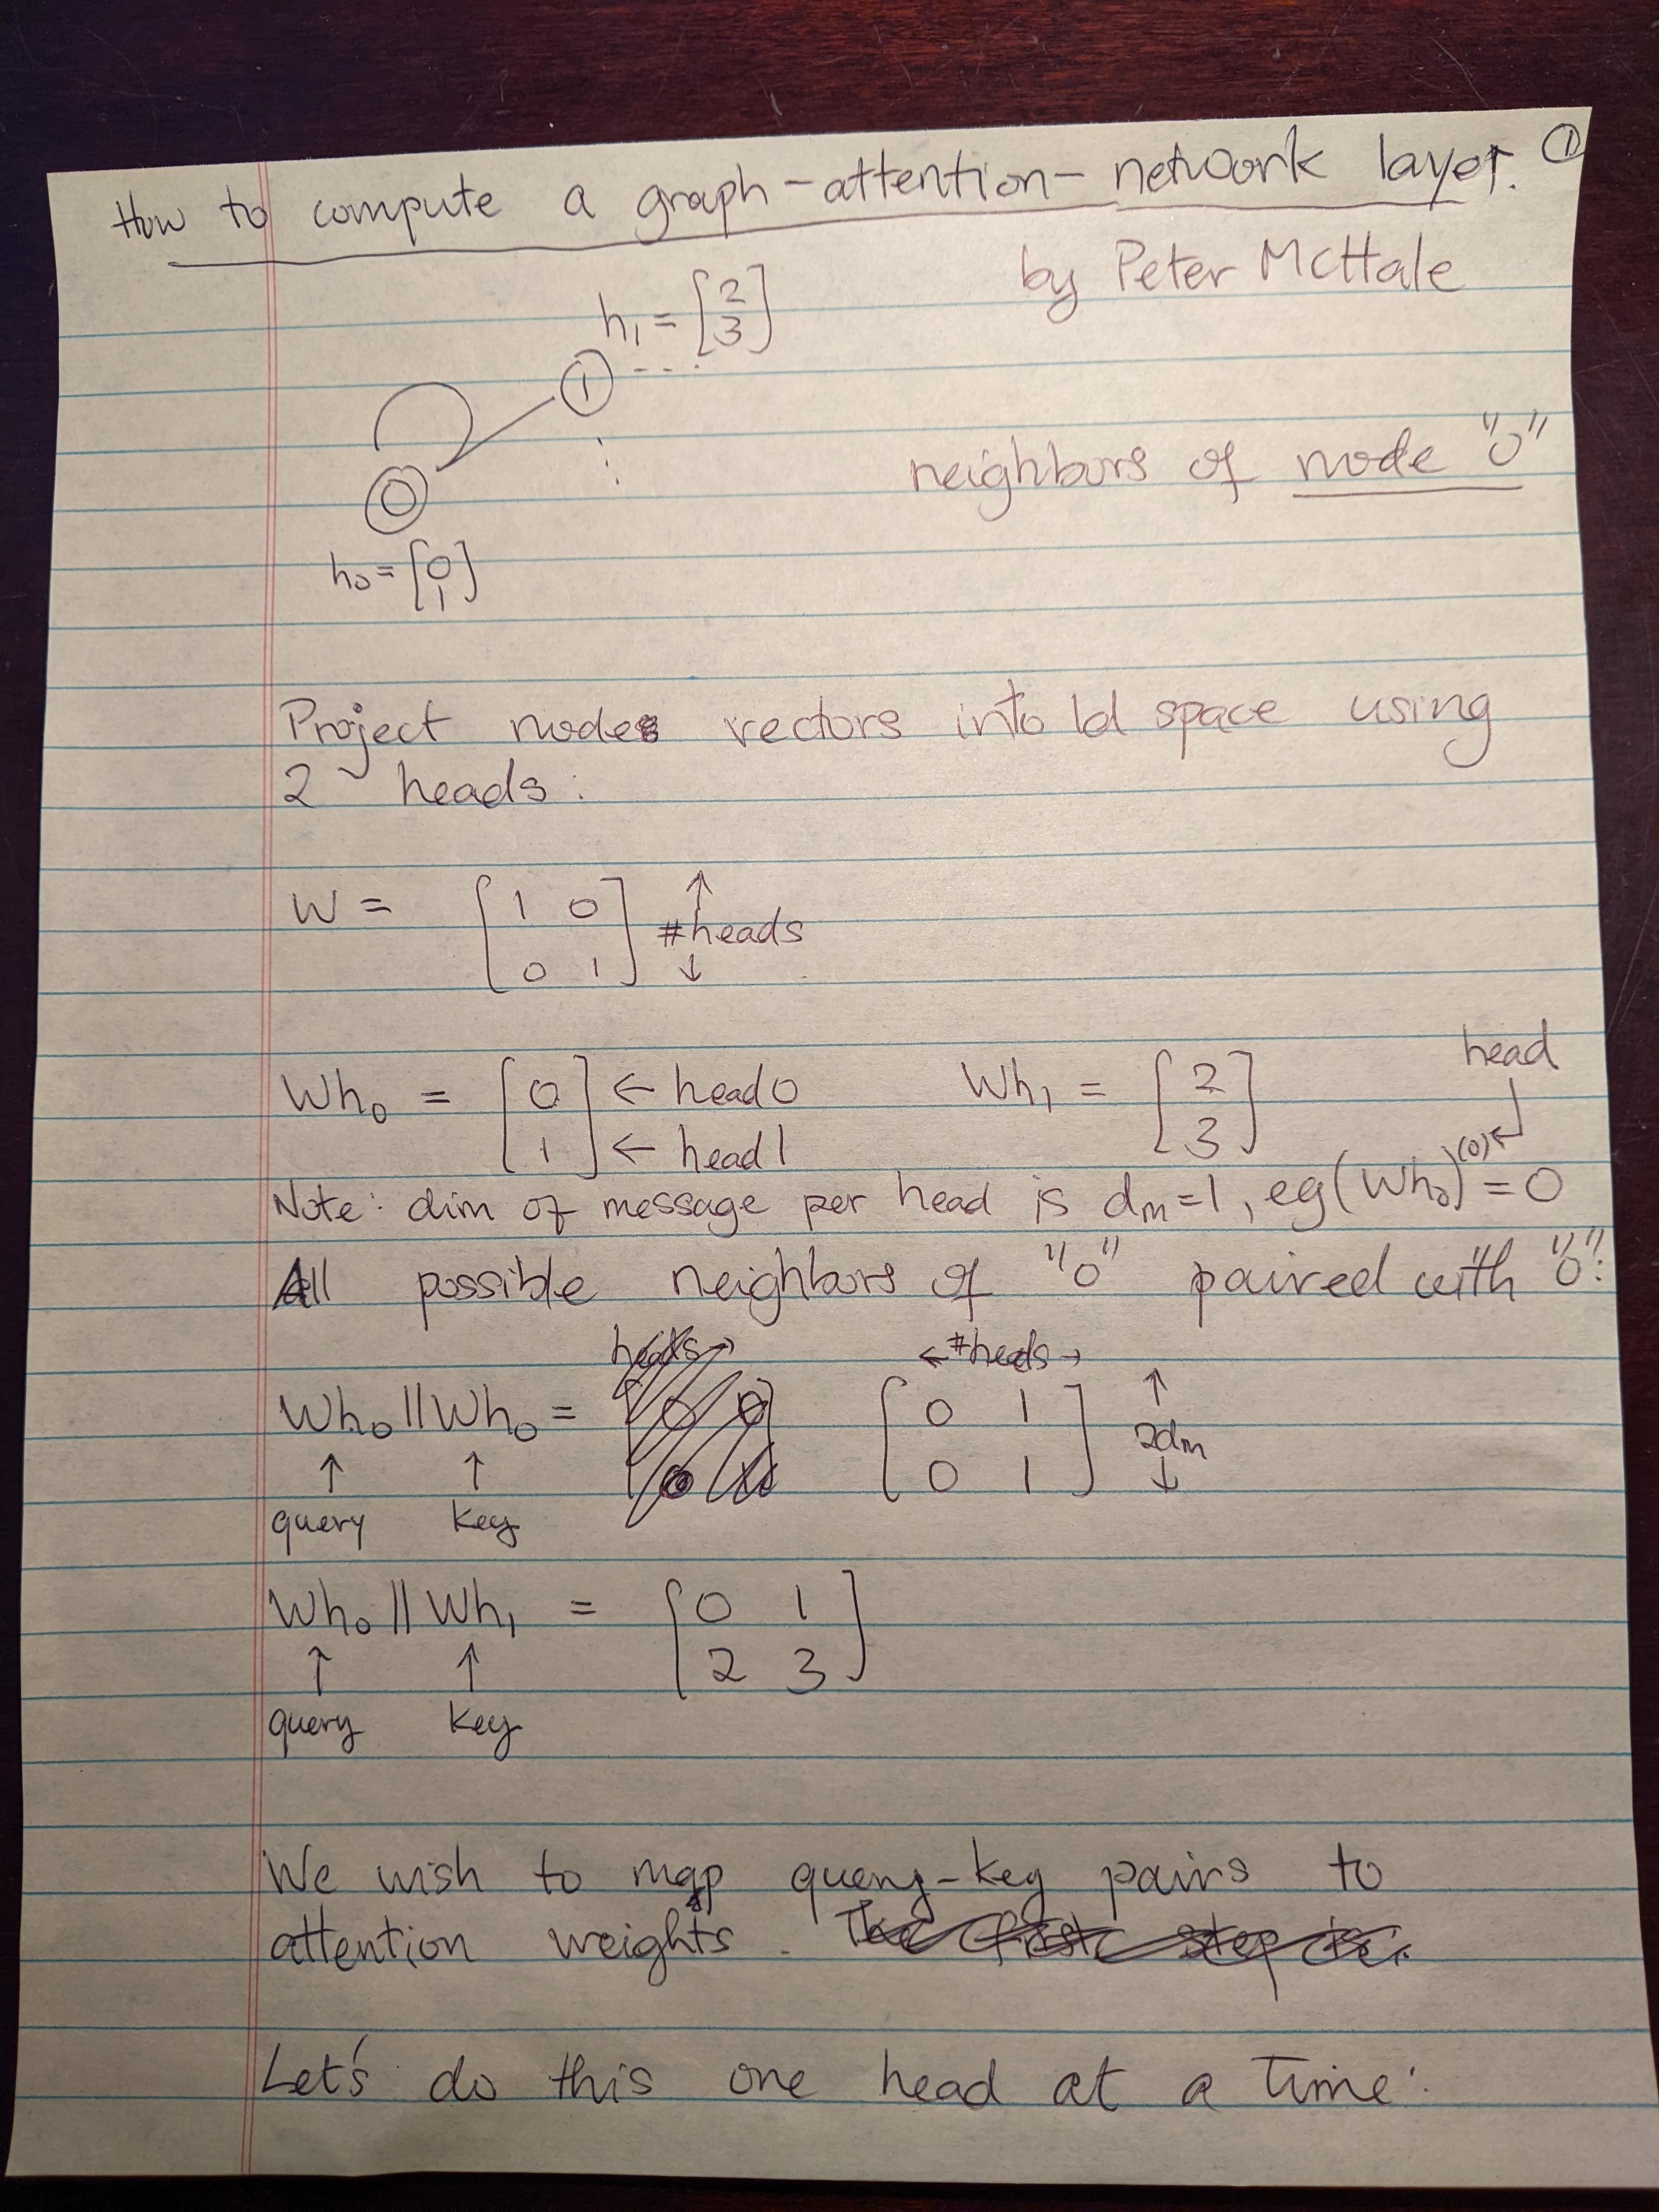 How to compute a graph-attention-network layer. ①
by Peter McHale
h₁ = [2 3]
1 ...
⋮
neighbors of node "0"
0
h₀ = [0 1]
Project node vectors into 1d space using
2 heads:
W = [1 0
0 1] ↑ #heads ↓
Wh₀ = [0 ← head 0
1] ← head 1
Wh₁ = [2
3]
head
Note: dim of message per head is dₘ=1, eg (Wh₀)⁽⁰⁾ = 0
All possible neighbors of "0" paired with "0":
← #heads →
Wh₀ || Wh₀ = [0 1
0 1] ↑ 2dₘ ↓
↑ ↑
query key
Wh₀ || Wh₁ = [0 1
2 3]
↑ ↑
query key
We wish to map query-key pairs to
attention weights. The first step is:
Let's do this one head at a time: